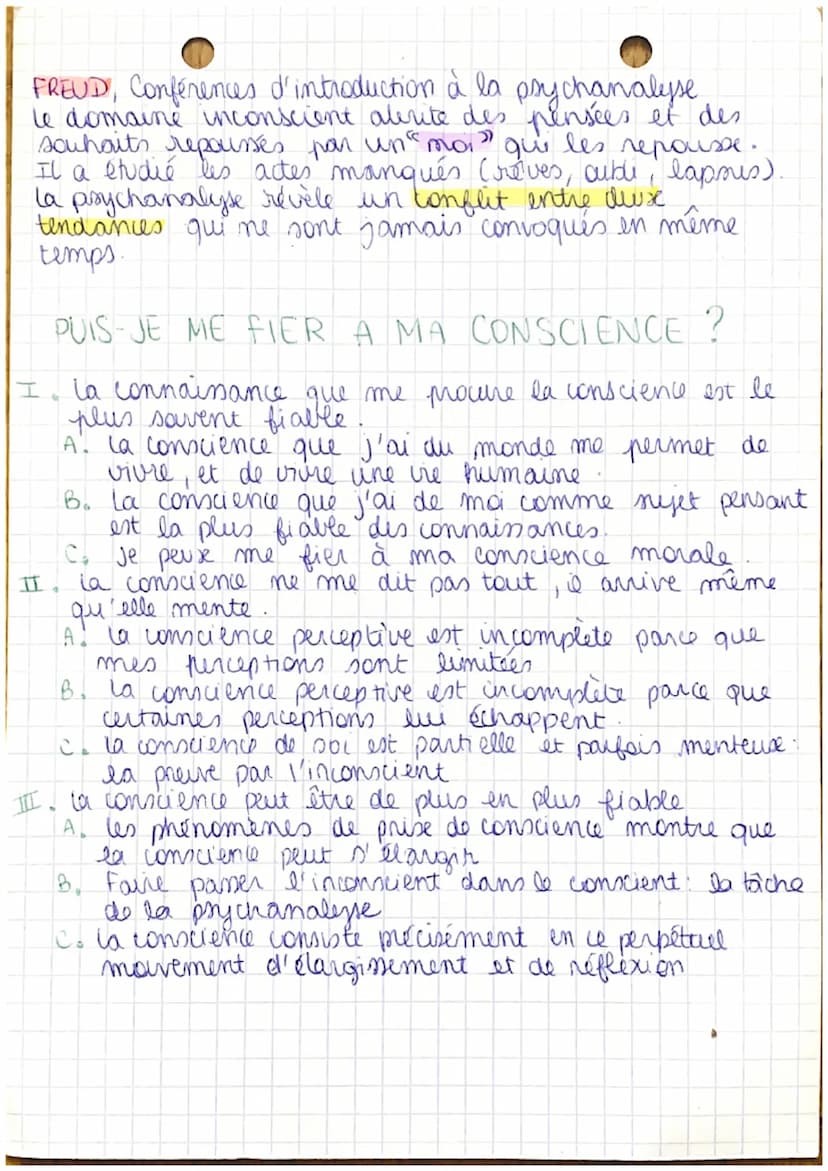 FREUD, Conférences d'introduction à la psychanalyse
Le domaine inconscient abrite des pensées et des
souhaits repoussés par un "moi" qui les repousse.
Il a étudié les actes manqués (rêves, oubli, lapsus).
La psychanalyse révèle un conflit entre deux
tendances qui ne sont jamais convoqués en même
temps.
PUIS-JE ME FIER A MA CONSCIENCE ?
I. La connaissance que me procure la conscience est le
plus souvent fiable.
A. La conscience que j'ai du monde me permet de
vivre, et de vivre une vie humaine.
B. La conscience que j'ai de moi comme sujet pensant
est la plus fiable des connaissances.
C. Je peux me fier à ma conscience morale.
II. La conscience ne me dit pas tout, il arrive même
qu'elle mente.
A. La conscience perceptive est incomplète parce que
mes perceptions sont limitées
B. La conscience perceptive est incomplète parce que
certaines perceptions lui échappent.
C. La conscience de soi est partielle et parfois menteuse :
la preuve par l'inconscient
III. La conscience peut être de plus en plus fiable
A. Les phénomènes de prise de conscience montre que
la conscience peut s'élargir
B. Faire passer l'inconscient dans le conscient : la tâche
de la psychanalyse
C. La conscience consiste précisément en ce perpétuel
mouvement d'élargissement et de réflexion